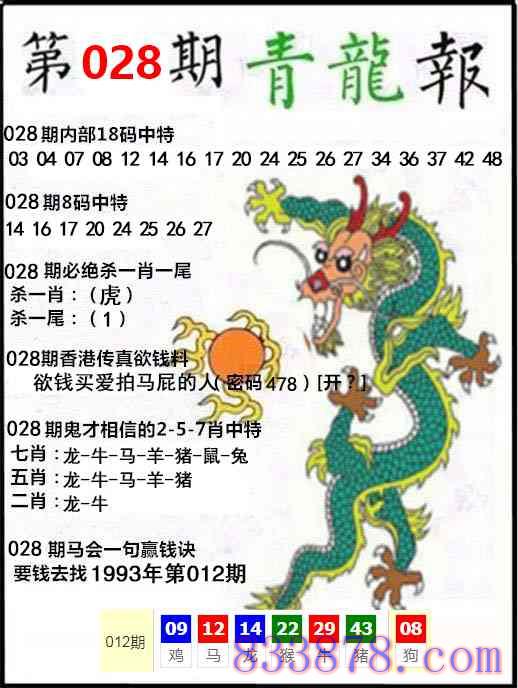 第028期青龍報
028期内部18码中特
03 04 07 08 12 14 16 17 20 24 25 26 27 34 36 37 42 48
028期8码中特
14 16 17 20 24 25 26 27
028 期必绝杀一肖一尾
杀一肖：（虎）
杀一尾：（1）
028期香港传真欲钱料
欲钱买爱拍马屁的人(密码478)[开？]
028期鬼才相信的2-5-7肖中特
七肖：龙-牛-马-羊-猪-鼠-兔
五肖：龙-牛-马-羊-猪
二肖：龙-牛
028 期马会一句赢钱诀
要钱去找1993年第012期
012期 09 12 14 22 29 43 08
鸡 马 龙 猴 牛 猪 狗
833878.com